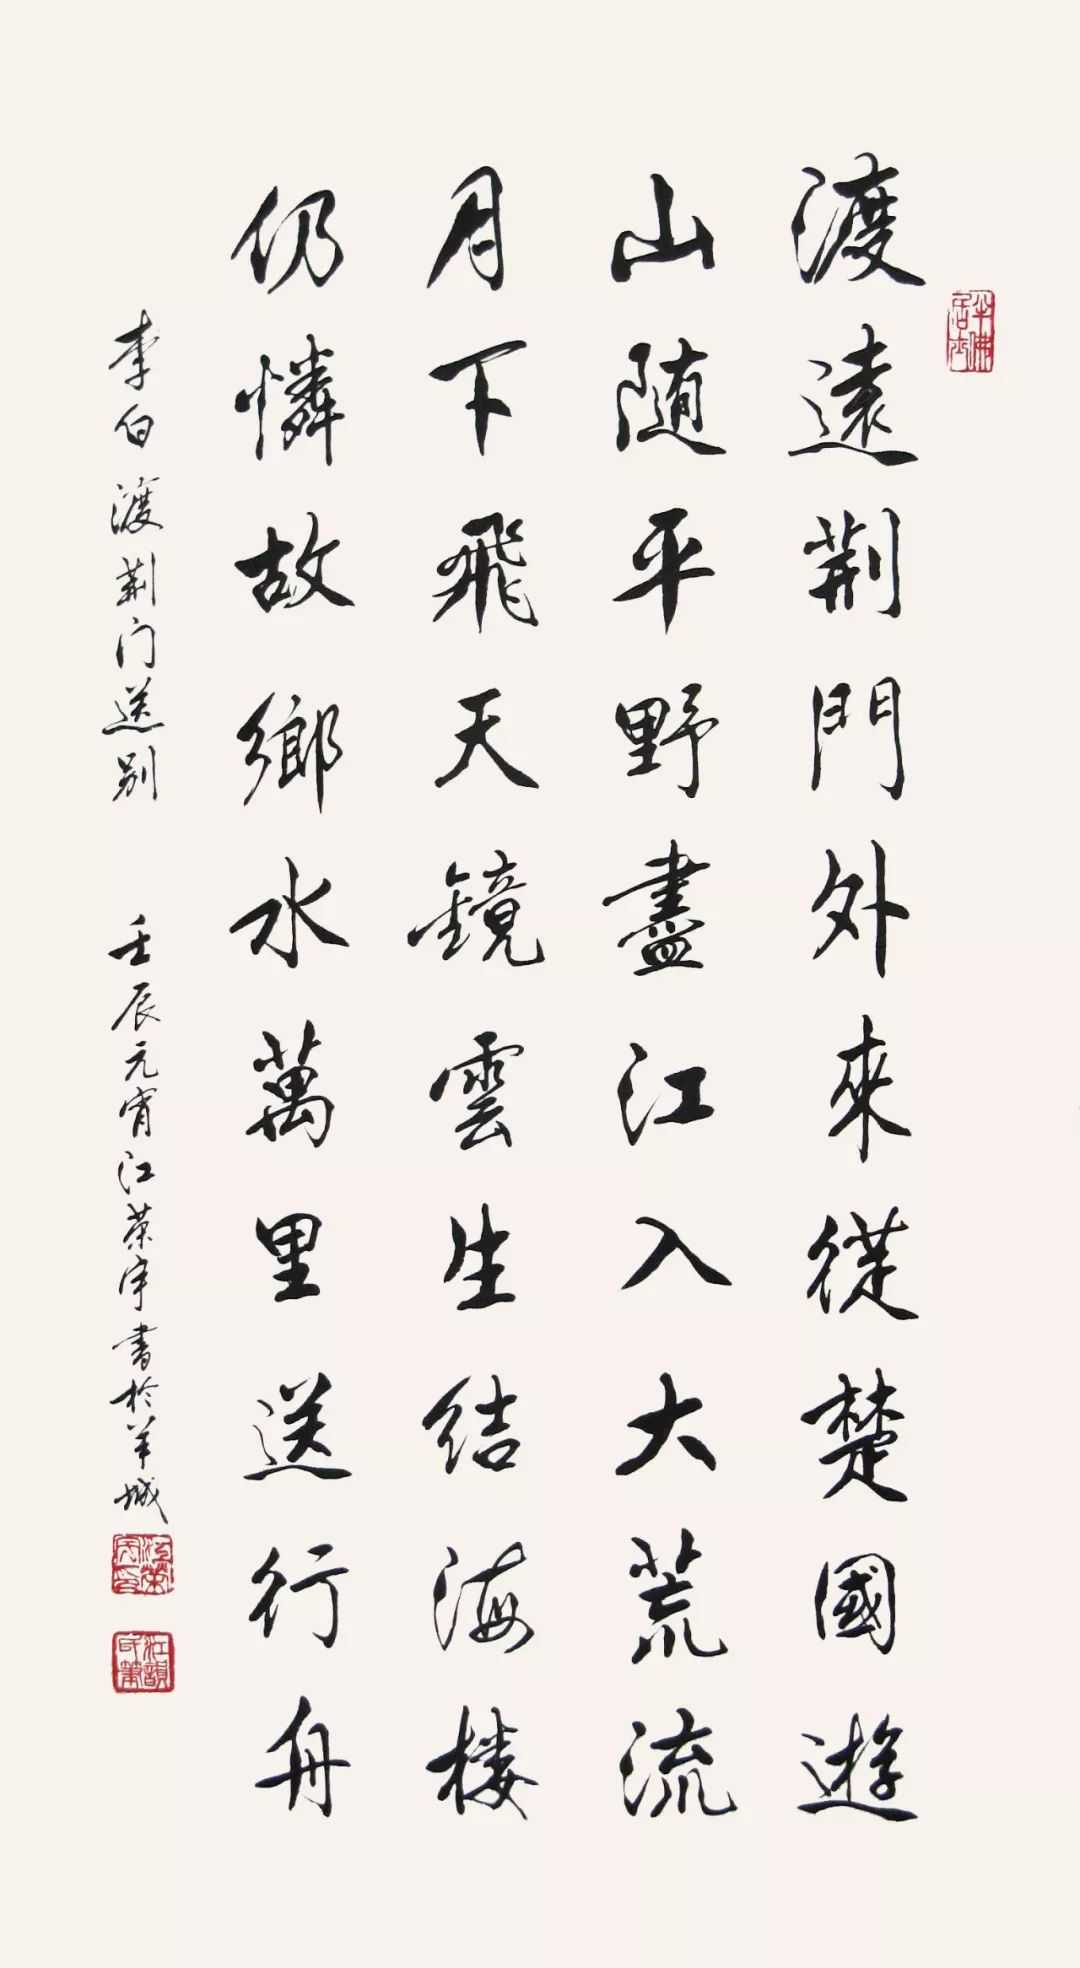 渡遠荆門外來從楚國遊
山随平野盡江入大荒流
月下飛天鏡雲生结海楼
仍憐故鄉水萬里送行舟
李白渡荆门送别
壬辰元宵江荣宇書於羊城